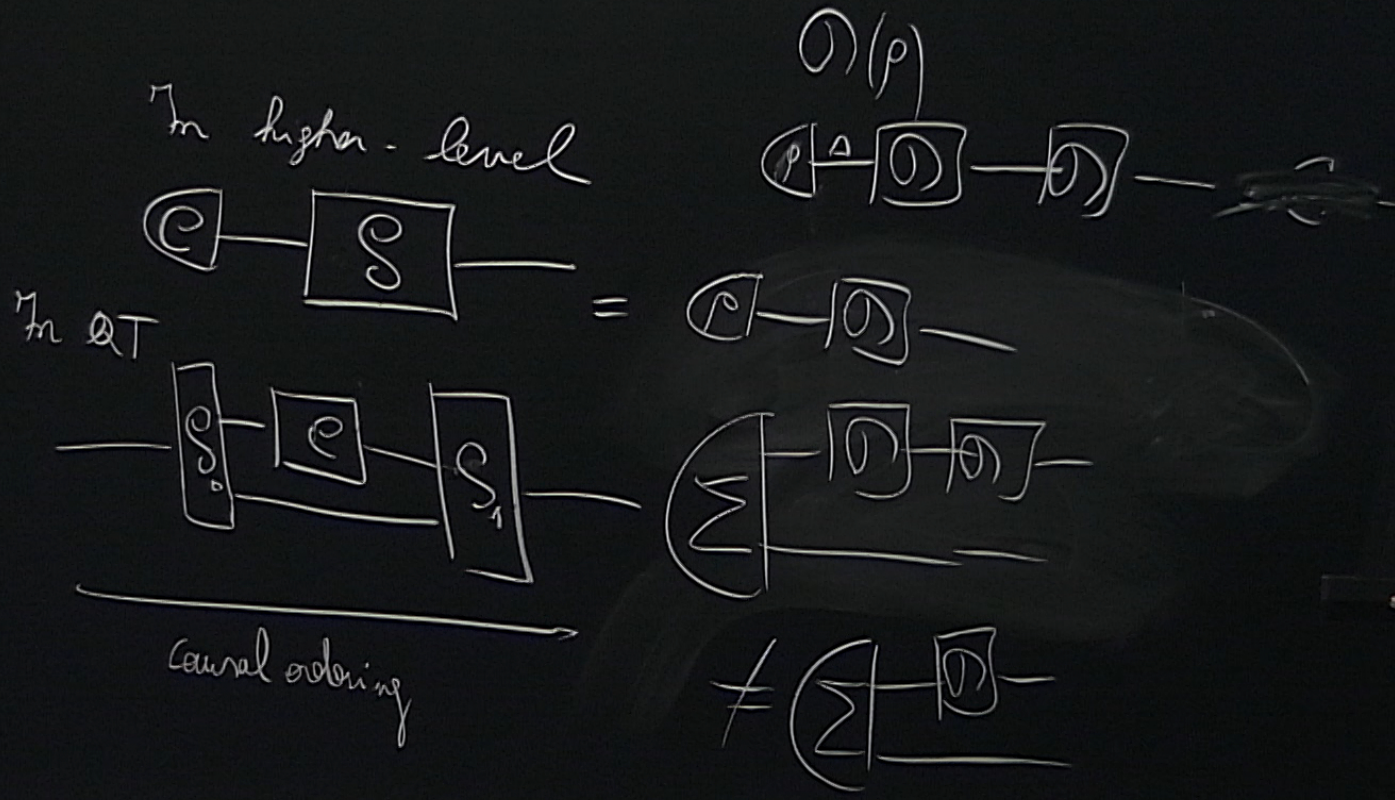 In higher-level
C
S
In QT
S₀
C
S₁
causal ordering
D(ρ)
ρ A D D
=
ρ D
Σ D D
≠
Σ D